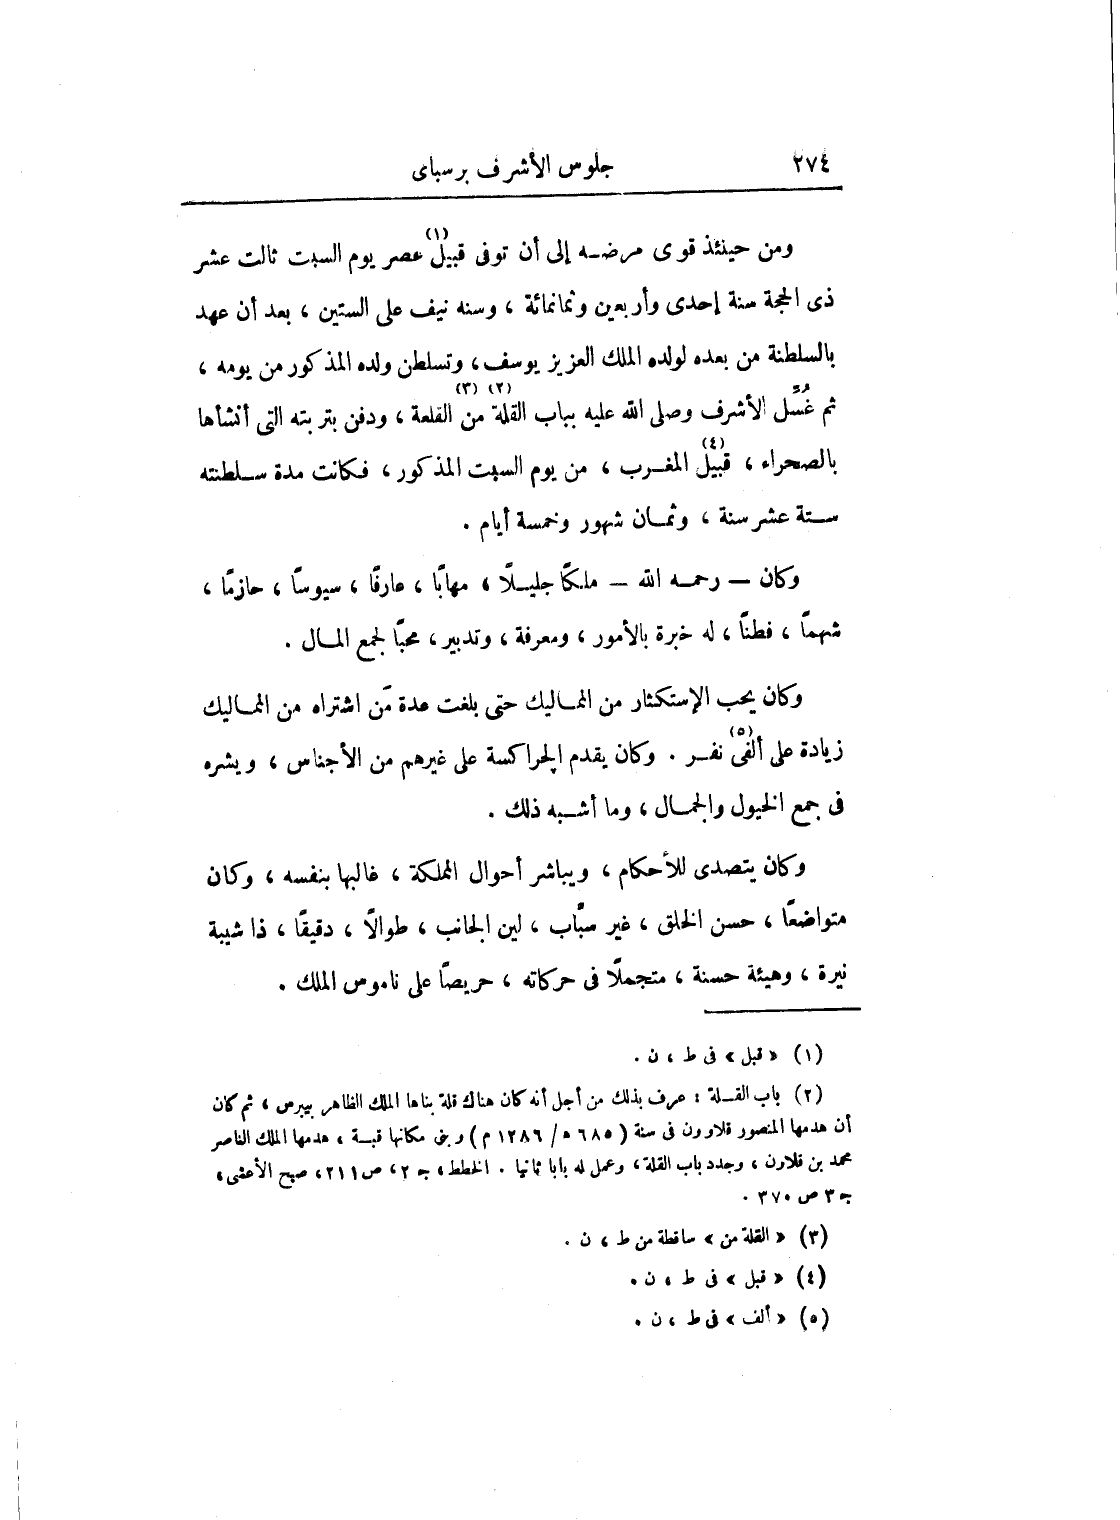 ٢٧٤
جلوس الأشرف برسباى
ومن حينئذ قوى مرضه إلى أن توفى قبيل(١) عصر يوم السبت ثالث عشر
ذى الحجة سنة إحدى وأربعين وثمانمائة ، وسنه نيف على الستين ، بعد أن عهد
بالسلطنة من بعده لولده الملك العزيز يوسف ، وتسلطن ولده المذكور من يومه ،
ثم غُسِّل الأشرف وصلى الله عليه بباب القلة(٢) من(٣) القلعة ، ودفن بتربته التى أنشأها
بالصحراء ، قبيل(٤) المغرب ، من يوم السبت المذكور ، فكانت مدة سلطنته
ستة عشر سنة ، وثمان شهور وخمسة أيام .
وكان — رحمه الله — ملكًا جليلًا ، مهابًا ، عارفًا ، سيوسًا ، حازمًا ،
شهمًا ، فطنًا ، له خبرة بالأمور ، ومعرفة ، وتدبير ، محبًا لجمع المال .
وكان يحب الإستكثار من المماليك حتى بلغت عدة مَن اشتراه من المماليك
زيادة على ألفى(٥) نفر . وكان يقدم الچراكسة على غيرهم من الأجناس ، ويشره
فى جمع الخيول والجمال ، وما أشبه ذلك .
وكان يتصدى للأحكام ، ويباشر أحوال المملكة ، غالبها بنفسه ، وكان
متواضعًا ، حسن الخلق ، غير سبَّاب ، لين الجانب ، طوالًا ، دقيقًا ، ذا شيبة
نيرة ، وهيئة حسنة ، متجملًا فى حركاته ، حريصًا على ناموس الملك .
(١) « قبل » فى ط ، ن .
(٢) باب القلة : عرف بذلك من أجل أنه كان هناك قلة بناها الملك الظاهر بيبرس ، ثم كان
أن هدمها المنصور قلاوون فى سنة ( ٦٨٥ ه / ١٢٨٦ م ) وبنى مكانها قبة ، هدمها الملك الناصر
محمد بن قلاون ، وجدد باب القلة ، وعمل له بابا ثانيا . الخطط ، ج ٢ ، ص ٢١١ ، صبح الأعشى ،
ج ٣ ص ٣٧٠ .
(٣) « القلة من » ساقطة من ط ، ن .
(٤) « قبل » فى ط ، ن .
(٥) « ألف » فى ط ، ن .